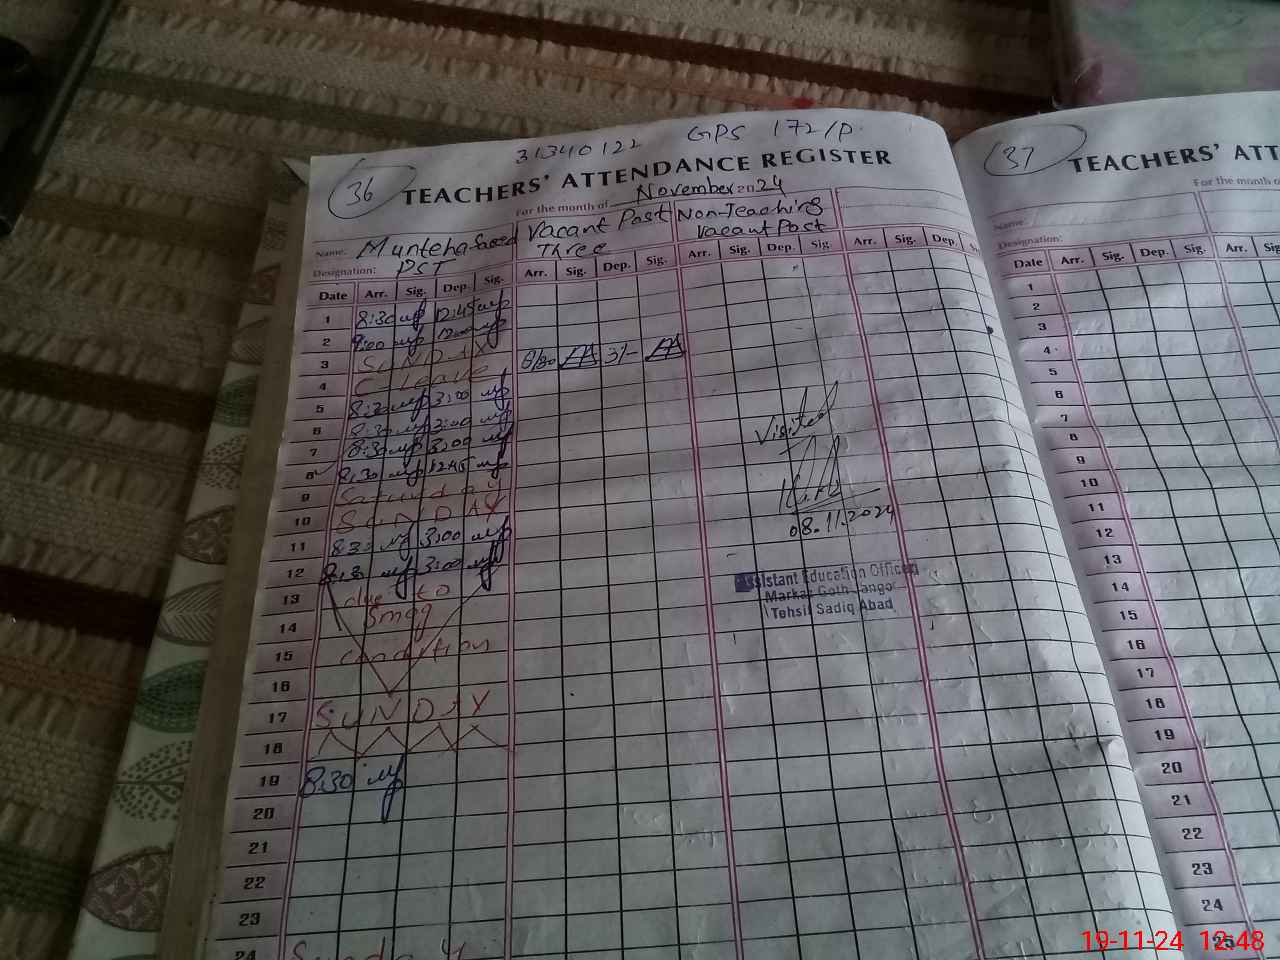 31340122 GPS 172/P.
36 TEACHERS' ATTENDANCE REGISTER
For the month of November 2024
Name: Munteha Saeed Vacant Post Three Non-Teaching Vacant Post
Designation: PST
Date Arr. Sig. Dep. Sig. Arr. Sig. Dep. Sig. Arr. Sig. Dep. Sig. Arr. Sig. Dep.
1 8:30 12:45
2 9:00 12:00
3 SUNDAY
4 C-leave 8/30 3/-
5 8:30 3:00
6 8:30 3:00
7 8:30 3:00
8 8:30 12:45
9 Saturday
10 SUNDAY
11 8:30 3:00
12 8:30 3:00
13 due to
14 Smog
15 condition
16
17 SUNDAY
18
19 8:30
20
21
22
23
24 Sunday
Visited
08.11.2024
Assistant Education Officer
Markaz Goth Jango
Tehsil Sadiq Abad
37 TEACHERS' ATT
For the month o
Name:
Designation:
Date Arr. Sig. Dep. Sig. Arr. Si
1
2
3
4
5
6
7
8
9
10
11
12
13
14
15
16
17
18
19
20
21
22
23
24
25
19-11-24 12:48